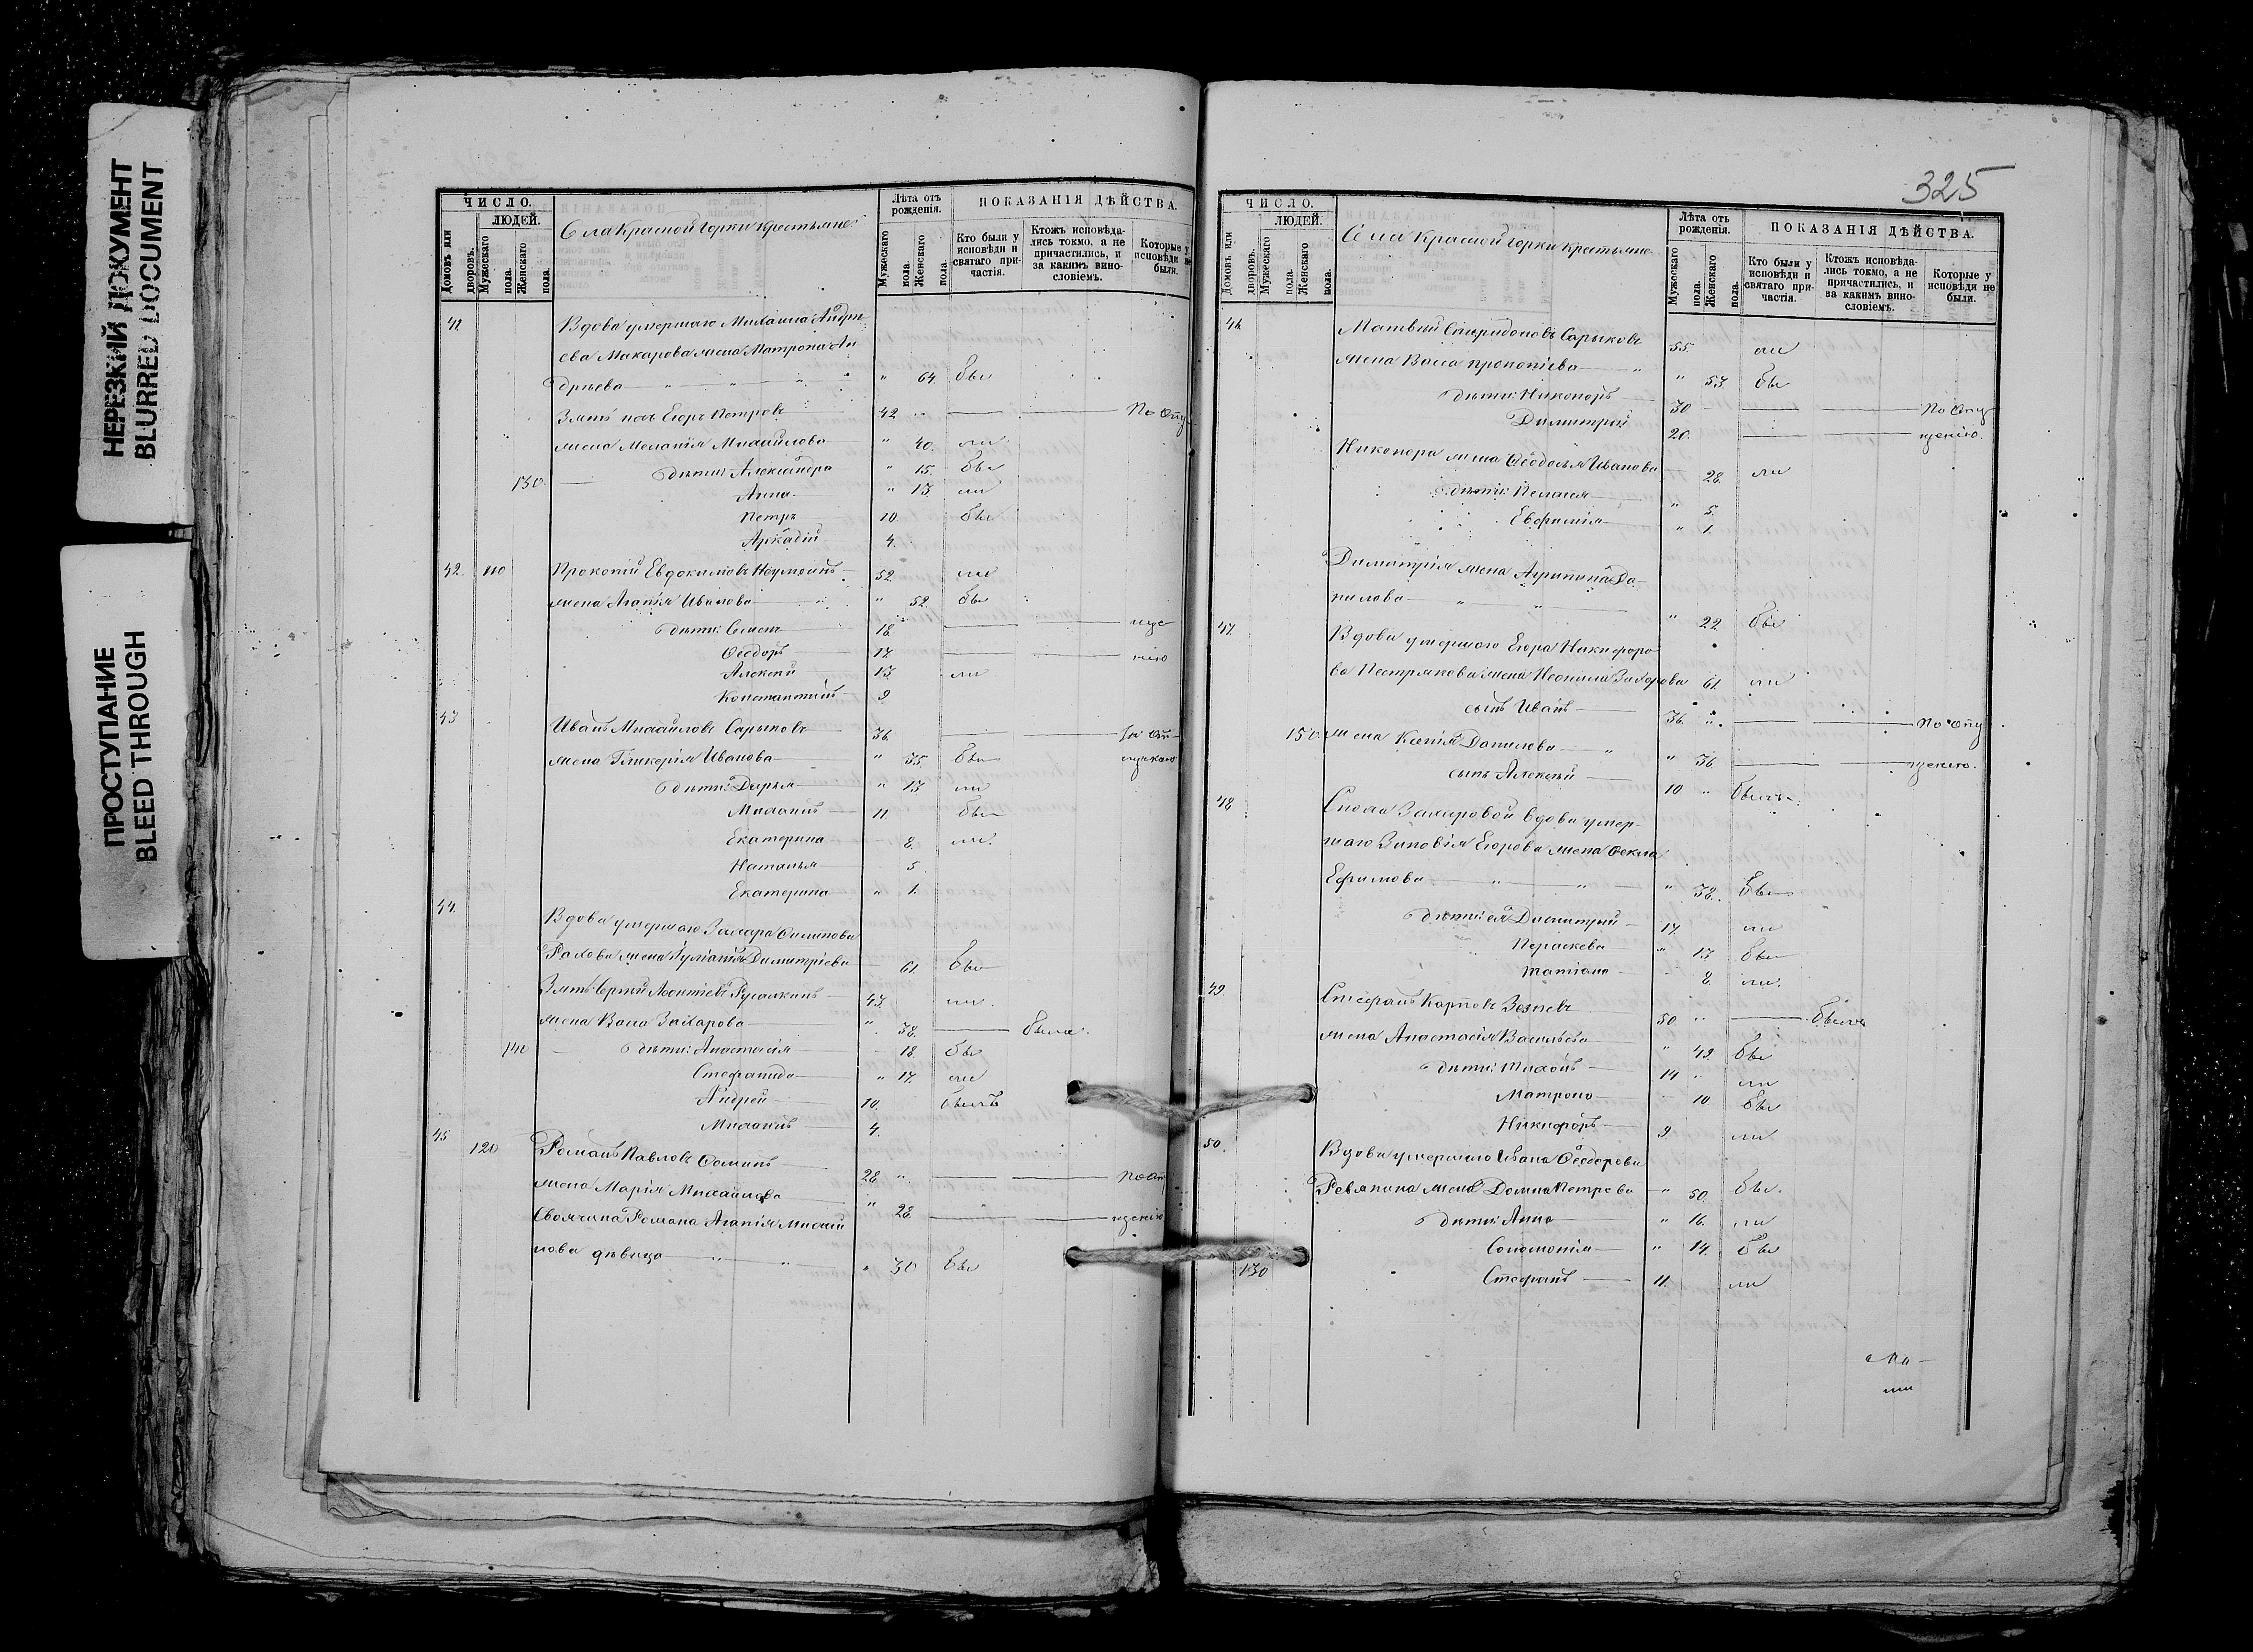 НЕРЕЗКИЙ ДОКУМЕНТ
BLURRED DOCUMENT
ПРОСТУПАНИЕ
BLEED THROUGH
ЧИСЛО.
ЛЮДЕЙ.
Домовъ или дворовъ.
Мужескаго пола.
Женскаго пола.
Села Красной Горки крестьяне
Лѣта отъ рожденія.
Мужескаго пола.
Женскаго пола.
ПОКАЗАНІЯ ДѢЙСТВА.
Кто были у исповѣди и святаго причастія.
Ктожъ исповѣдались токмо, а не причастились, и за какимъ винословіемъ.
Которые у исповѣди не были.
41 Вдова умершаго Михаила Андре
ева Макарова жена Матрона Ан
дрѣева " 64. бы
Зять ихъ Егоръ Петровъ 42 По опу
жена Меланія Михайлова " 40. ли
130. дѣти: Александра " 15. бы
Анна " 13 ли
Петръ 10. бы
Аркадій 4.
42. 110 Прокопій Евдокимовъ 52. ли
жена Агапія Иванова " 52. бы
дѣти: Семенъ 18. ще
Ѳеодоръ 17. нію
Алексѣй 13. ли
Константинъ 9.
43 Иванъ Михайловъ Сарыковъ 36.
жена Гликерія Иванова " 35. бы
дѣти: Дарья " 13 ли
Михаилъ 11 бы
Екатерина 8. ли.
Наталья 5
Екатерина " 1.
44. Вдова умершаго Захара
жена Димитріева 61 бы
Зять Сергѣй Леонтіевъ 43. ли.
жена Васса Захарова " 38. была.
140 дѣти: Анастасія 18. бы
Стефанида " 17. ли
Андрей 10. былъ
Михаилъ 4.
45 120 Романъ Павловъ Ѳоминъ 28. " По опу
жена Марія Михайлова " 28. щенію
Своячина Романа Агапія Михай
лова дѣвица " 30 бы
325
ЧИСЛО.
ЛЮДЕЙ.
Домовъ или дворовъ.
Мужескаго пола.
Женскаго пола.
Села Красной Горки крестьяне
Лѣта отъ рожденія.
Мужескаго пола.
Женскаго пола.
ПОКАЗАНІЯ ДѢЙСТВА.
Кто были у исповѣди и святаго причастія.
Ктожъ исповѣдались токмо, а не причастились, и за какимъ винословіемъ.
Которые у исповѣди не были.
46. Матвѣй Спиридоновъ Сарыковъ 55. ли
жена Васса Прокопіева " 53. бы
дѣти: Никоноръ 30 По опу
Димитрій 20. щенію.
Никонора жена Ѳеодосья Иванова 28. ли
дѣти: Пелагея " 5.
Евфимія " 1.
Димитрія жена Агрипина Да
нилова " 22 бы
47. Вдова умершаго Егора Никифоро
ва Пестрякова жена Неонила Захарова 61. ли
сынъ Иванъ 36. " По опу
150 жена Ксенія Данилова " 36. щенію.
сынъ Алексѣй 10 " былъ.
48 Сноха Захаровой вдова умер
шаго Зиновія Егорова жена Ѳекла
Ефимова " 38. бы
дѣти: ея Димитрій 17. ли
Параскева " 13 бы
Татіана 8. ли.
49. Стефанъ Карповъ 50 " былъ
жена Анастасія Васильева " 49. бы
дѣти: Тихонъ 14 " ли
Матрона 10 бы
Никифоръ 9. ли.
50. Вдова умершаго Ивана Ѳеодорова
Ревякина жена Домна Петрова " 50. бы.
дѣти: Анна " 16. ли
Соломонія " 14. бы
130 Стефанъ 11. ли